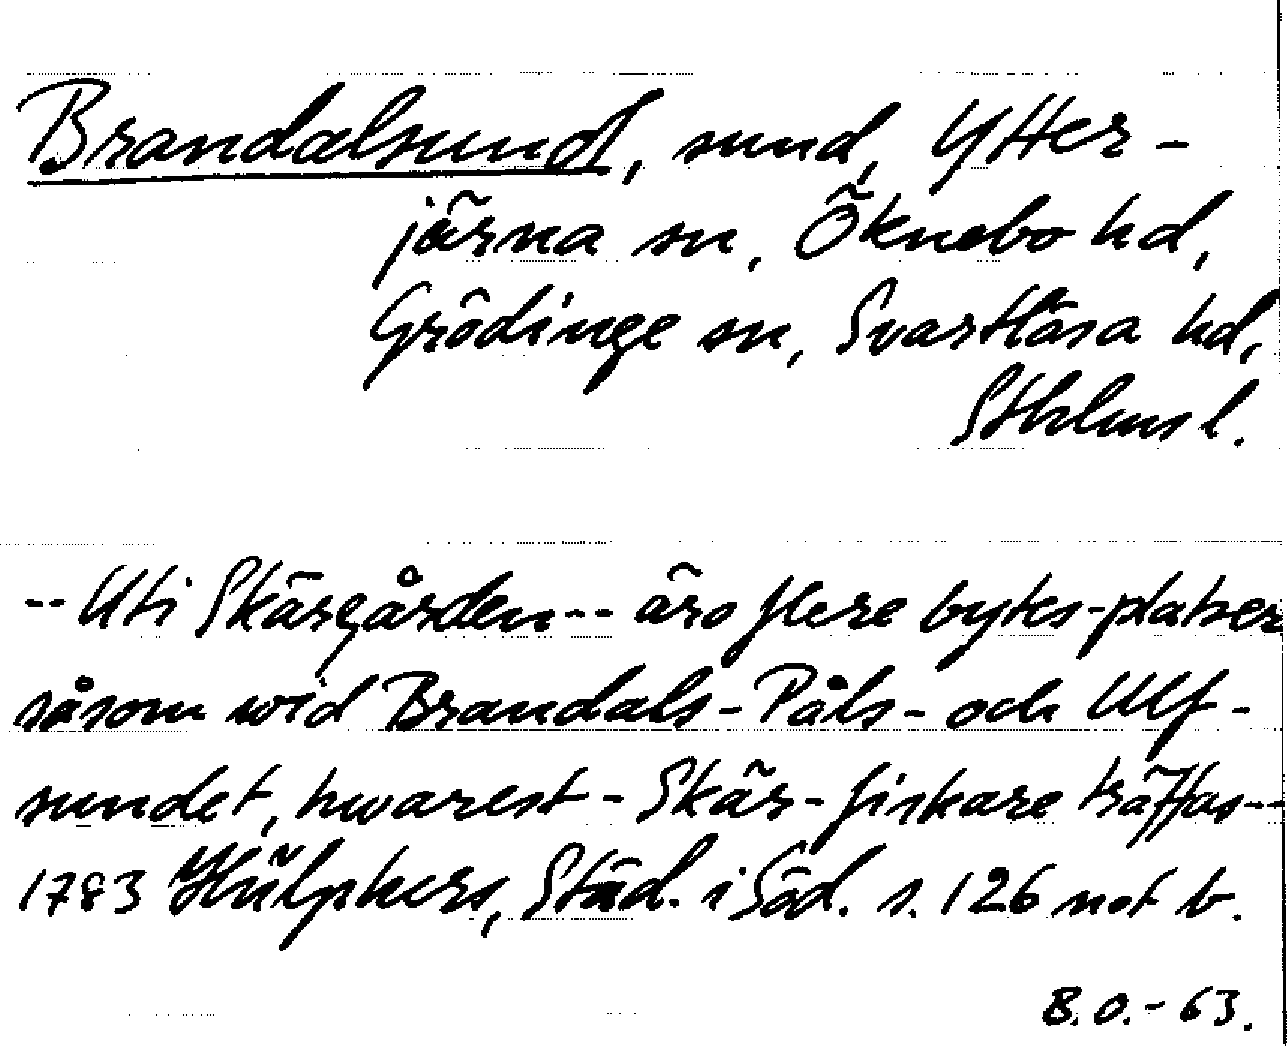 Brandalsund, sund, Ytter-
järna sn, Öknebo hd,
Grödinge sn, Svartlösa hd,
Sthlms l.
-- Uti Skärgården -- äro flere bytes-platser
såsom wid Brandals- Påls- och Ulf-
sundet, hwarest - Skär-fiskare träffas --
1783 Hülphers, Städ. i Söd. s. 126 not b.
B.O. - 63.